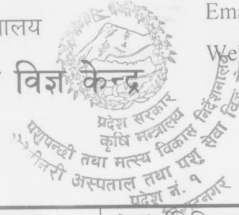 ालय
Ema
We
विज्ञ केन्द्र
प्रदेश सरकार
कृषि मन्त्रालय
पशुपन्छी तथा मत्स्य विकास निर्देशनालय
अस्पताल तथा पशु सेवा विज्ञ
प्रदेश नं. १